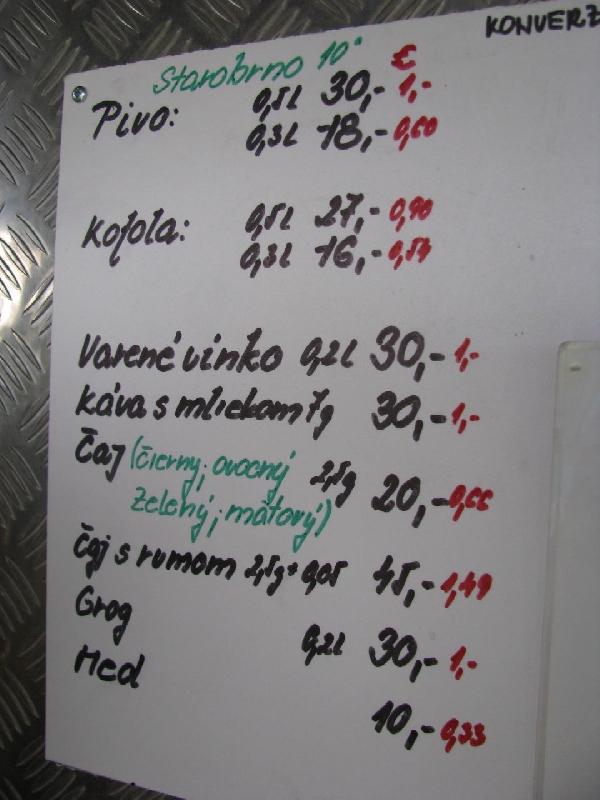 KONVERZ
Starobrno 10° €
Pivo: 0,5l 30,- 1,-
0,3l 18,- 0,60
Kofola: 0,5l 27,- 0,90
0,3l 16,- 0,54
Varené vínko 0,2l 30,- 1,-
Káva s mliekom 7g 30,- 1,-
Čaj (čierny, ovocný 2,5g 20,- 0,66
zelený, mätový)
Čaj s rumom 2,5g+0,05 45,- 1,49
Grog 0,2l 30,- 1,-
Med 10,- 0,33